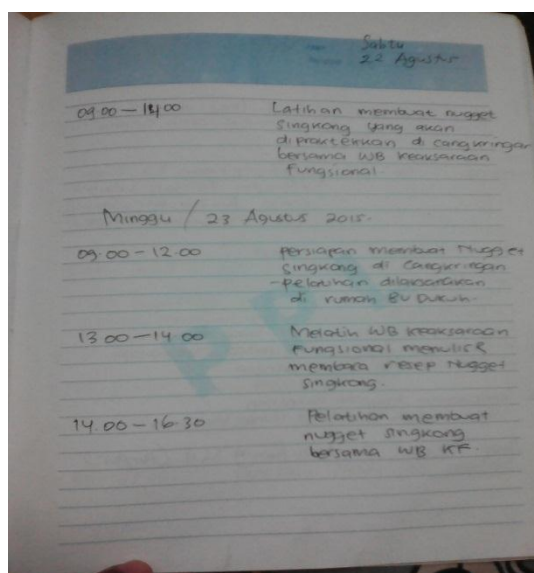 Sabtu
22 Agustus
09.00 – 14.00 Latihan membuat nugget
singkong yang akan
dipraktekkan di cangkringan
bersama WB keaksaraan
Fungsional
Minggu / 23 Agustus 2015.
09.00 – 12.00 persiapan membuat Nugget
singkong di Cangkringan
- pelatihan dilaksanakan
di rumah Bu Dukuh.
13.00 – 14.00 Melatih WB keaksaraan
Fungsional menulis &
membaca resep Nugget
singkong.
14.00 – 16.30 Pelatihan membuat
nugget singkong
bersama WB KF.
PPL